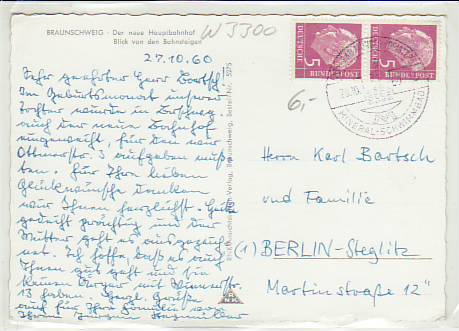 BRAUNSCHWEIG - Der neue Hauptbahnhof
Blick von den Bahnsteigen
W 5300
27.10.60
Sehr geehrter Herr Bartsch,
Im Geburtsmonat unserer
Tochter wurde in Bschweig.
auch der neue Bahnhof
eingeweiht, für den wir
Ottmerstr. 3 aufgeben muß-
ten. Für Ihre lieben
Glückwünsche danken
wir Ihnen herzlichst.
gedacht prächtig und der
Mutter geht es ausgezeich-
net. Ich hoffe, daß es auch
Ihnen gut geht und Sie
keinen Ärger mit
13 haben. Herzl. Grüße
auch für Ihre Familie
Ihnen Jürgen
6,-
5
DEUTSCHE
BUNDESPOST
5
DEUTSCHE
BUNDESPOST
MINERAL-SCHWIMMBAD
Herrn Karl Bartsch
und Familie
(1) BERLIN-Steglitz
Martinstraße 12"